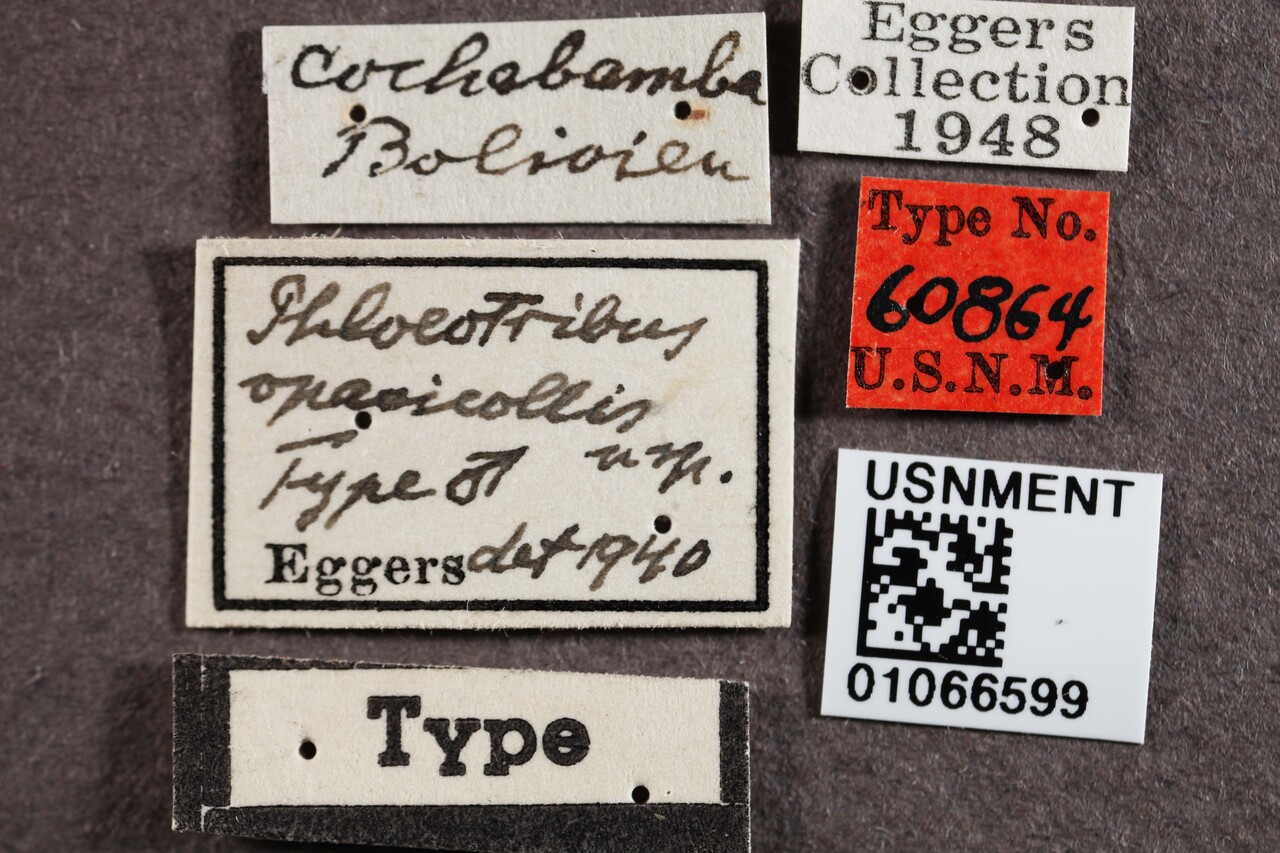 Cochabamba
Bolivien
Eggers
Collection
1948
Type No.
60864
U.S.N.M.
Phloeotribus
opacicollis
Type ♂ n sp.
Eggers det 1940
USNMENT
01066599
Type